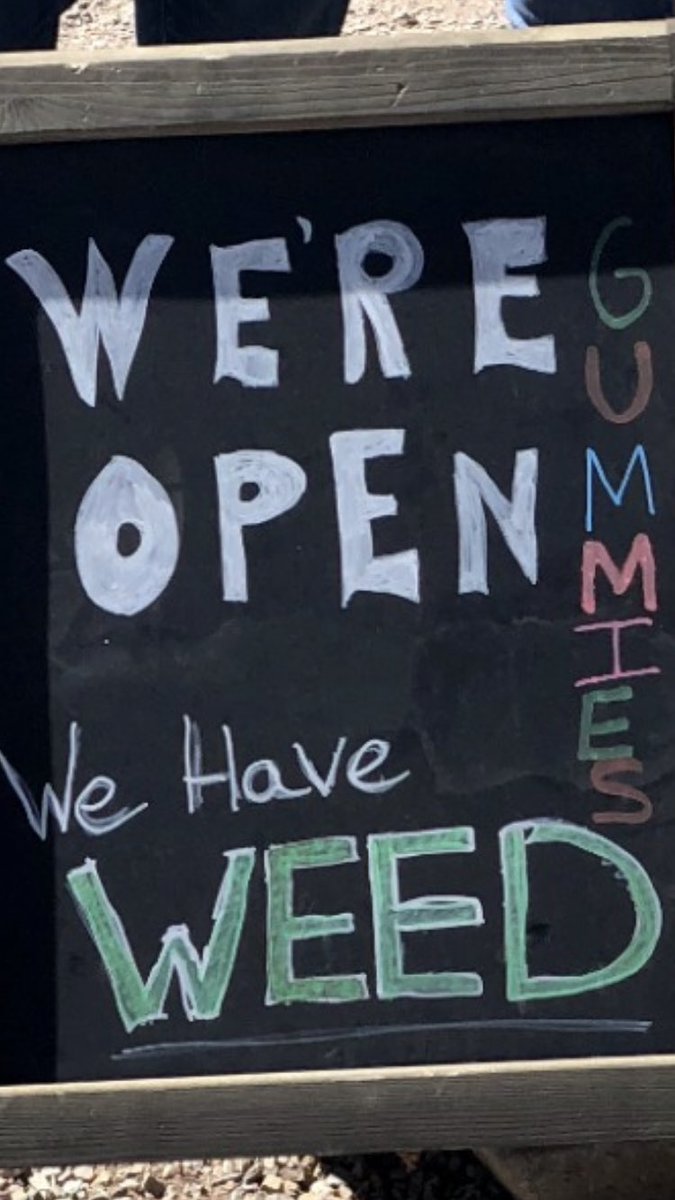 WE'RE
OPEN
GUMMIES
We Have
WEED